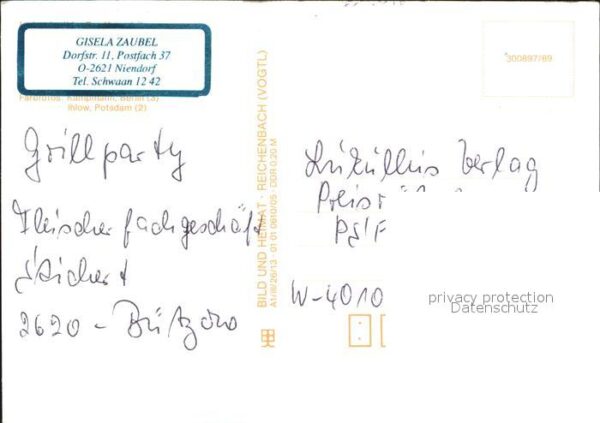 GISELA ZAUBEL
Dorfstr. 11, Postfach 37
O-2621 Niendorf
Tel. Schwaan 12 42
Farbfotos: Kampmann, Berlin (3)
Ihlow, Potsdam (2)
Grillparty
Fleischerfachgeschäft
2620 - Bützow
BILD UND HEIMAT · REICHENBACH (VOGTL)
A1/III/26/13 · 01 01 0610/05 · DDR 0,20 M
300897/89
Lukullus Verlag
W-4010
privacy protection
Datenschutz